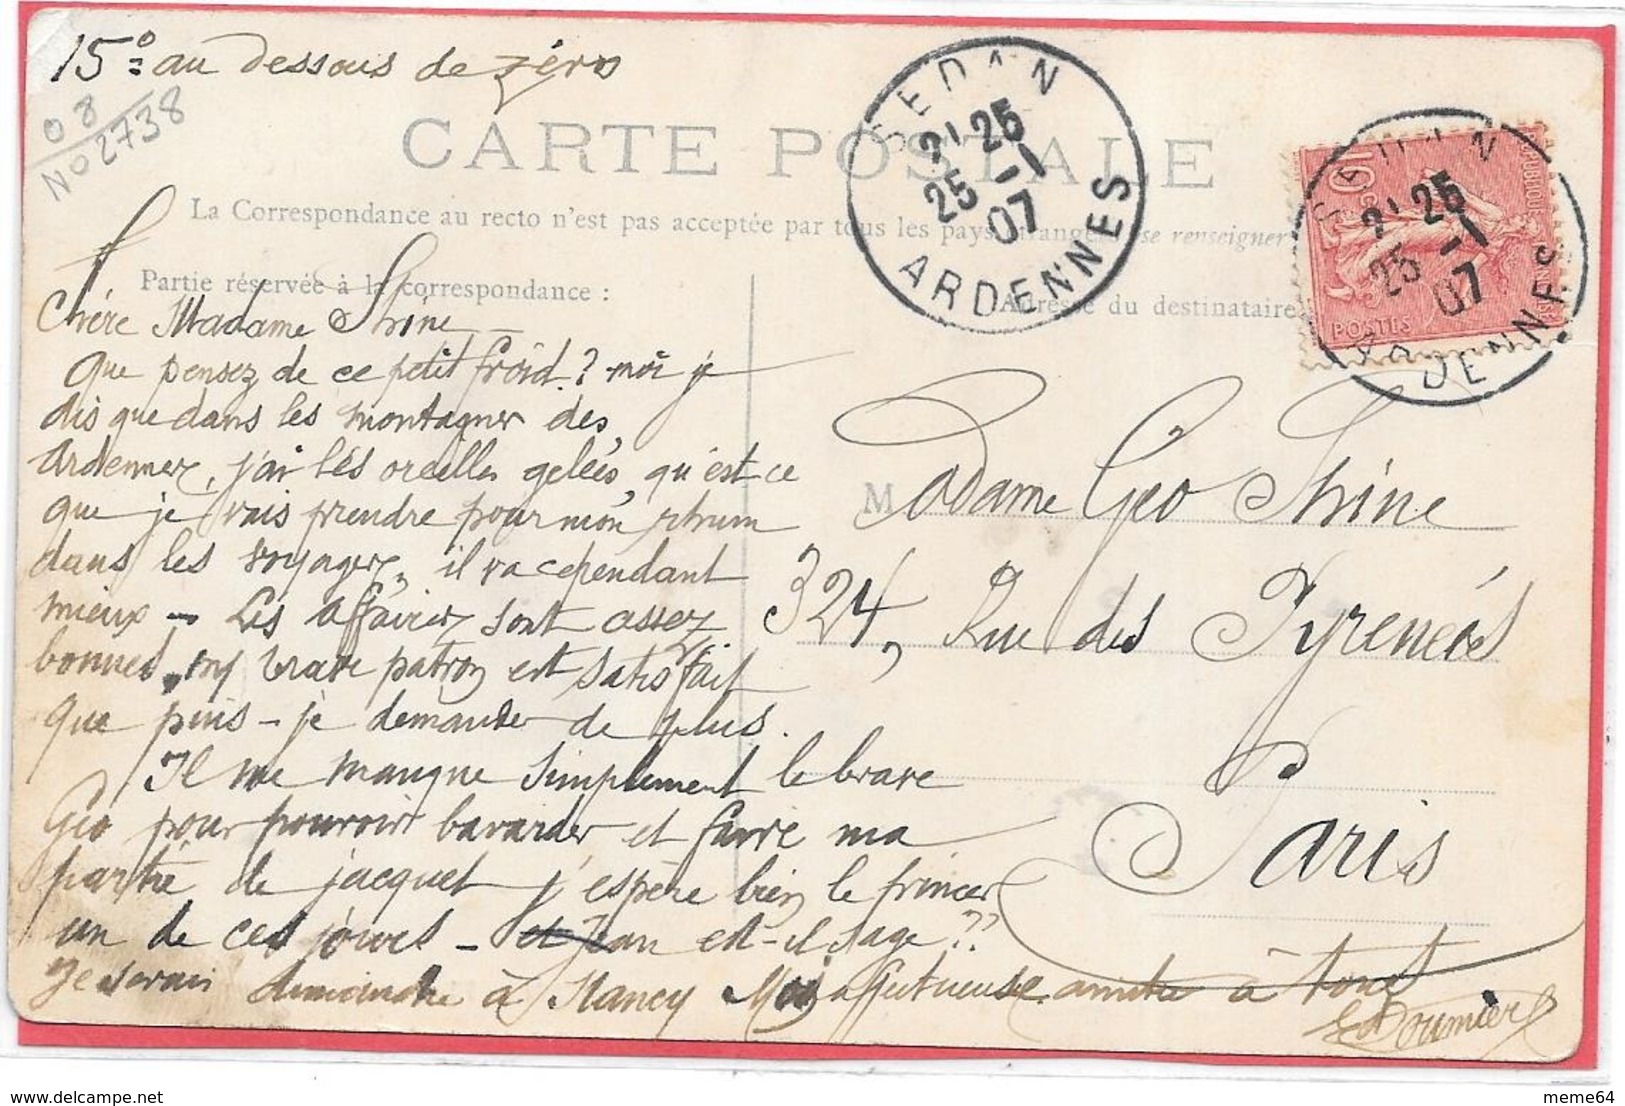 15° au dessous de zéro
08
No 2738
CARTE POSTALE
La Correspondance au recto n'est pas acceptée par tous les pays étrangers (se renseigner
Partie réservée à la correspondance :
Adresse du destinataire
SEDAN
2' 25
25 -1
07
ARDENNES
SEDAN
2' 25
25 -1
07
ARDENNES
10
POSTES
Chère Madame Shine
que pensez de ce petit froid ? moi je
dis que dans les montagnes des
Ardennes, j'ai les oreilles gelées, qu'est-ce
que je vais prendre pour mon rhum
dans les voyages, il va cependant
mieux - Les affaires sont assez
bonnes, my brave patron est satisfait
que puis-je demander de plus.
Il me manque simplement le brave
Geo pour pouvoir bavarder et faire ma
partie de jacquet j'espère bien le pincer
un de ces jours - et Jean est-il sage ??
Je serais dimanche à Nancy Mes affectueuses amitiés à tous
Doumier
M adame Geo Shine
324, Rue des Pyreneés
Paris
meme64